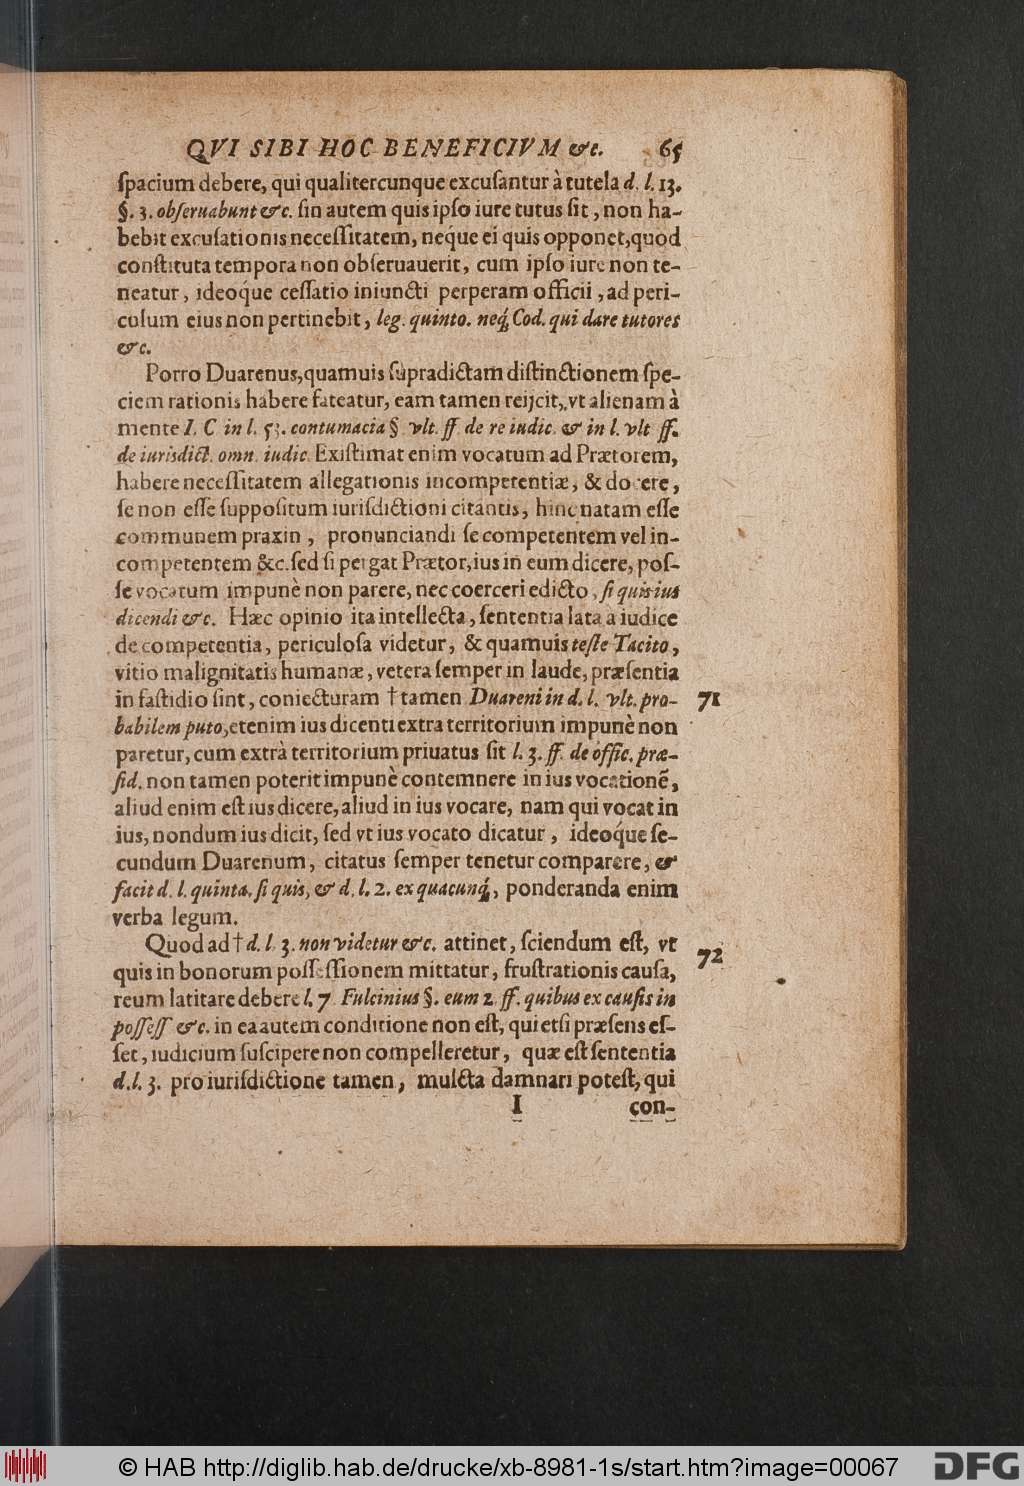 QVI SIBI HOC BENEFICIVM &c. 65
ſpacium debere, qui qualitercunque excuſantur à tutela d. l. 13.
§. 3. obſeruabunt &c. ſin autem quis ipſo iure tutus ſit, non ha-
bebit excuſationis neceſſitatem, neque ei quis opponet, quod
conſtituta tempora non obſeruauerit, cum ipſo iure non te-
neatur, ideoq́ue ceſſatio iniuncti perperam officii, ad peri-
culum eius non pertinebit, leg. quinto. neq́; Cod. qui dare tutores
&c.
Porro Duarenus, quamuis ſupradictam diſtinctionem ſpe-
ciem rationis habere fateatur, eam tamen reijcit, vt alienam à
mente I. C in l. 53. contumacia §. vlt. ff. de re iudic. & in l. vlt ff.
de iurisdict. omn. iudic. Exiſtimat enim vocatum ad Prætorem,
habere neceſſitatem allegationis incompetentiæ, & docere,
ſe non eſſe ſuppoſitum iuriſdictioni citantis, hinc natam eſſe
communem praxin, pronunciandi ſe competentem vel in-
competentem &c. ſed ſi pergat Prætor, ius in eum dicere, poſ-
ſe vocatum impunè non parere, nec coerceri edicto, ſi quis ius
dicendi &c. Hæc opinio ita intellecta, ſententia lata à iudice
de competentia, periculoſa videtur, & quamuis teſte Tacito,
vitio malignitatis humanæ, vetera ſemper in laude, præſentia
in faſtidio ſint, coniecturam † tamen Duareni in d. l. vlt. pro- 71
babilem puto, etenim ius dicenti extra territorium impunè non
paretur, cum extrà territorium priuatus ſit l. 3. ff. de offic. præ-
ſid. non tamen poterit impunè contemnere in ius vocationẽ,
aliud enim eſt ius dicere, aliud in ius vocare, nam qui vocat in
ius, nondum ius dicit, ſed vt ius vocato dicatur, ideoq́ue ſe-
cundum Duarenum, citatus ſemper tenetur comparere, &
facit d. l. quinta. ſi quis, & d. l. 2. ex quacunq́;, ponderanda enim
verba legum.
Quod ad † d. l. 3. non videtur &c. attinet, ſciendum eſt, vt 72
quis in bonorum poſſeſſionem mittatur, fruſtrationis cauſa,
reum latitare debere l. 7 Fulcinius §. eum 2. ff. quibus ex cauſis in
poſſeſſ &c. in ea autem conditione non eſt, qui etſi præſens eſ-
ſet, iudicium ſuſcipere non compelleretur, quæ eſt ſententia
d. l. 3. pro iuriſdictione tamen, mulcta damnari poteſt, qui
I con-
© HAB http://diglib.hab.de/drucke/xb-8981-1s/start.htm?image=00067 DFG